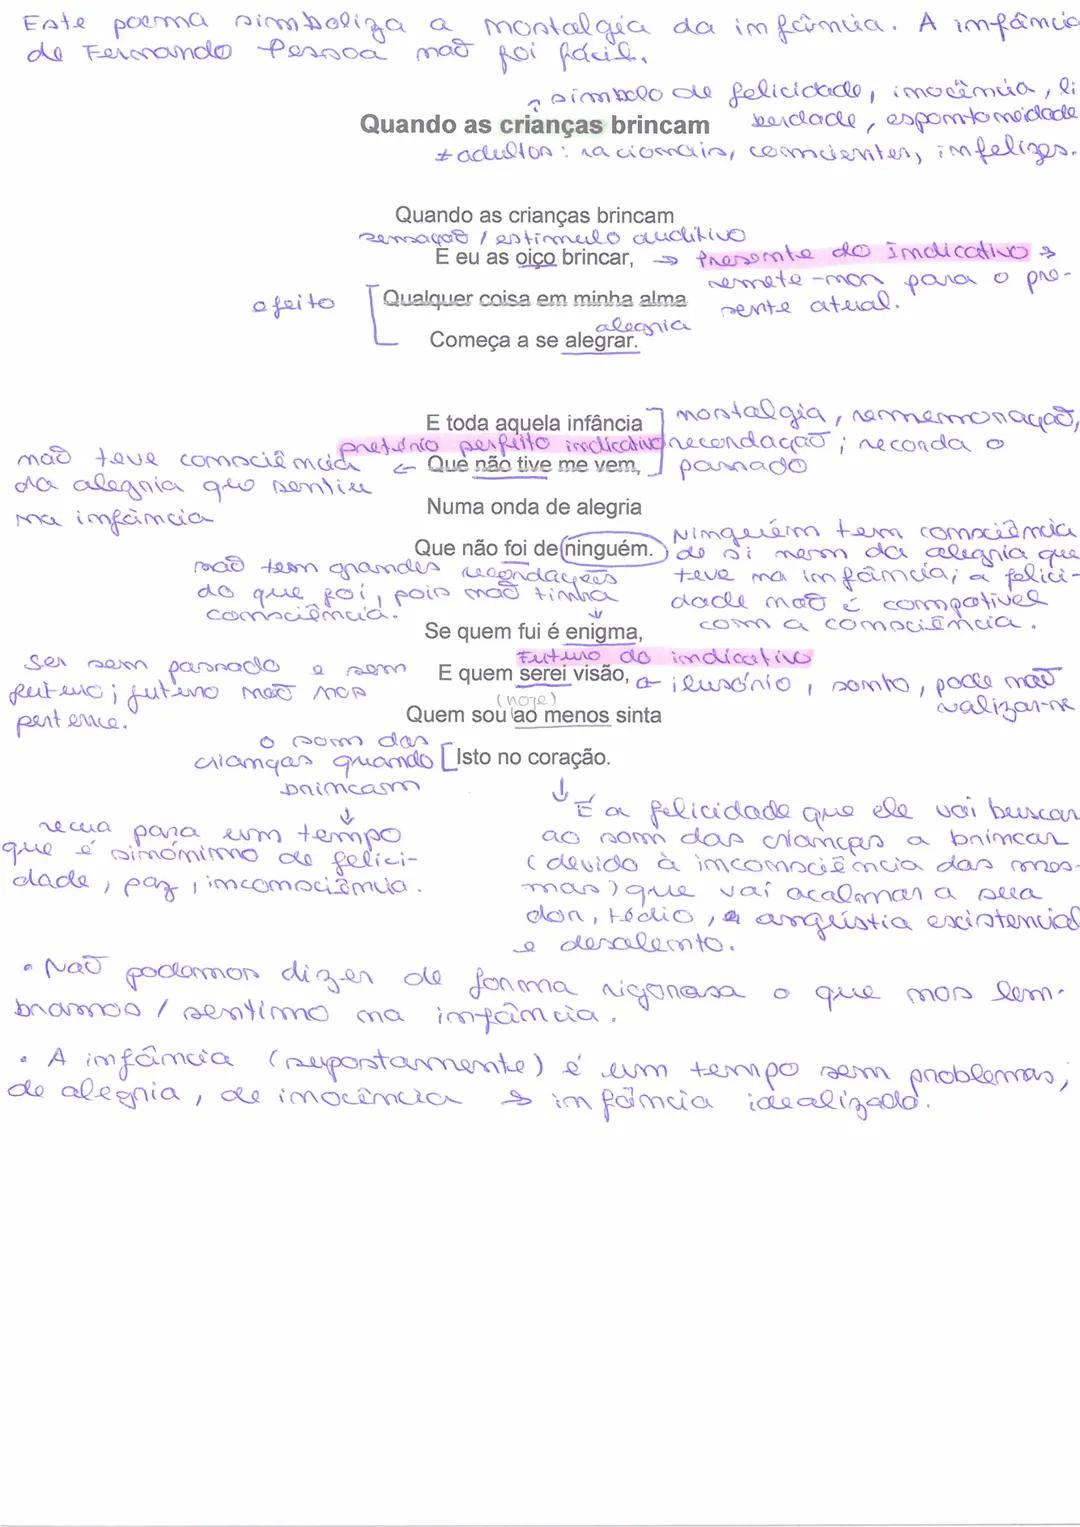 Este poema simboliza a nostalgia da infância. A infância
de Fernando Pessoa não foi fácil.
símbolo de felicidade, inocência, li
berdade, espontaneidade
Quando as crianças brincam
≠ adultos: racionais, conscientes, infelizes.
Quando as crianças brincam
sensação / estímulo auditivo
E eu as oiço brincar, → Presente do Indicativo →
remete-nos para o pre-
sente atual.
efeito
Qualquer coisa em minha alma
alegria
Começa a se alegrar.
E toda aquela infância
nostalgia, rememoração,
recordação; recorda o
passado
pretérito perfeito indicativo
Que não tive me vem,
não teve consciência
da alegria que sentiu
na infância
Numa onda de alegria
Que não foi de ninguém.
Ninguém tem consciência
de si nem da alegria que
teve na infância; a felici-
dade não é compatível
com a consciência.
não tem grandes recordações
do que foi, pois não tinha
consciência.
Se quem fui é enigma,
Futuro do indicativo
E quem serei visão,
ilusório, sonho, pode não
realizar-se
Ser sem passado e sem
futuro; futuro não nos
pertence.
(hoje)
Quem sou ao menos sinta
Isto no coração.
o som das
crianças quando
brincam
recua para um tempo
que é sinónimo de felici-
dade, paz, inconsciência.
É a felicidade que ele vai buscar
ao som das crianças a brincar
(devido à inconsciência das mes-
mas) que vai acalmar a sua
dor, tédio, angústia existencial
e desalento.
• Não podemos dizer de forma rigorosa o que nos lem-
bramos / sentimo na infância.
• A infância (supostamente) é um tempo sem problemas,
de alegria, de inocência → infância idealizada.